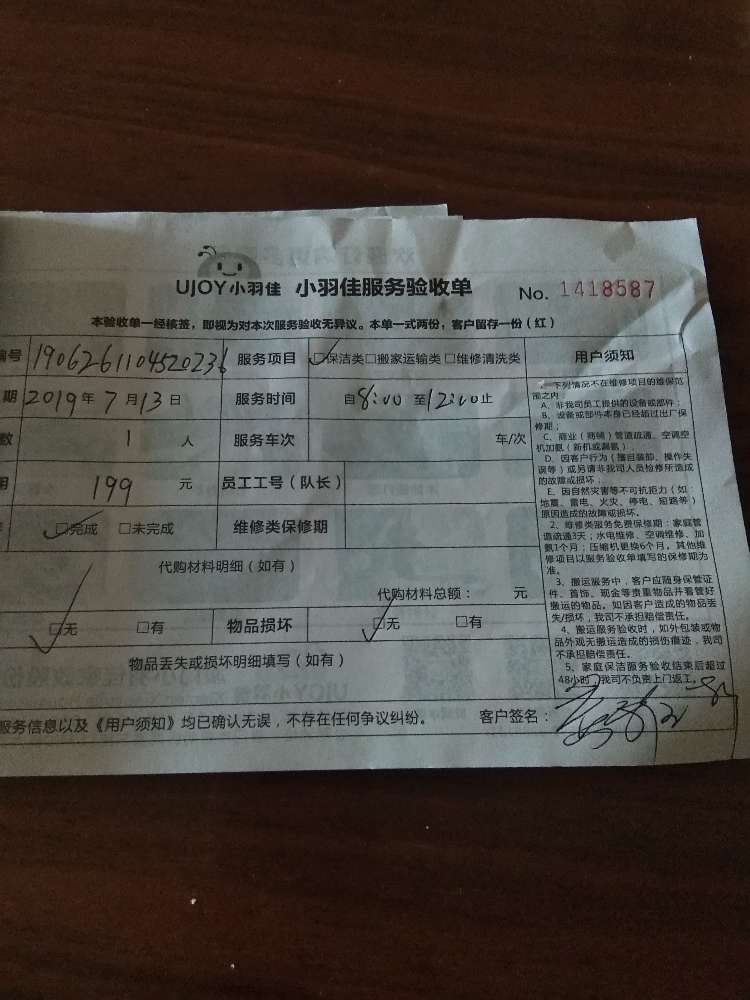 UJOY小羽佳 小羽佳服务验收单 No. 1418587
本验收单一经核签，即视为对本次服务验收无异议。本单一式两份，客户留存一份（红）
编号 1906261104520236 服务项目 □保洁类□搬家运输类□维修清洗类 用户须知
期 2019年7月13日 服务时间 自8:00至12:00止
数 1 人 服务车次 车/次
用 199 元 员工工号（队长）
□完成 □未完成 维修类保修期
代购材料明细（如有）
代购材料总额： 元
□无 □有 物品损坏 □无 □有
物品丢失或损坏明细填写（如有）
服务信息以及《用户须知》均已确认无误，不存在任何争议纠纷。 客户签名：
1、下列情况不在维修项目的维保范
围之内
A、非我司员工提供的设备或部件；
B、设备或部件本身已经超过出厂保
修期；
C、商业（商铺）管道疏通、空调空
机加氨（新机或漏氨）；
D、因客户行为（擅自装卸、操作失
误等）或另请非我司人员检修所造成
的故障或损坏；
E、因自然灾害等不可抗拒力（如：
地震、雷电、火灾、停电、短路等）
原因造成的故障或损坏。
2、维修类服务免费保修期：家庭管
道疏通3天；水电维修、空调维修、加
氨1个月；压缩机更换6个月。其他维
修项目以服务验收单填写的保修期为
准。
3、搬运服务中，客户应随身保管证
件、首饰、现金等贵重物品并看管好
搬运的物品。如因客户造成的物品丢
失/损坏，我司不承担赔偿责任。
4、搬运服务验收时，如外包装或物
品外观无搬运造成的损伤痕迹，我司
不承担赔偿责任。
5、家庭保洁服务验收结束后超过
48小时，我司不负责上门返工。